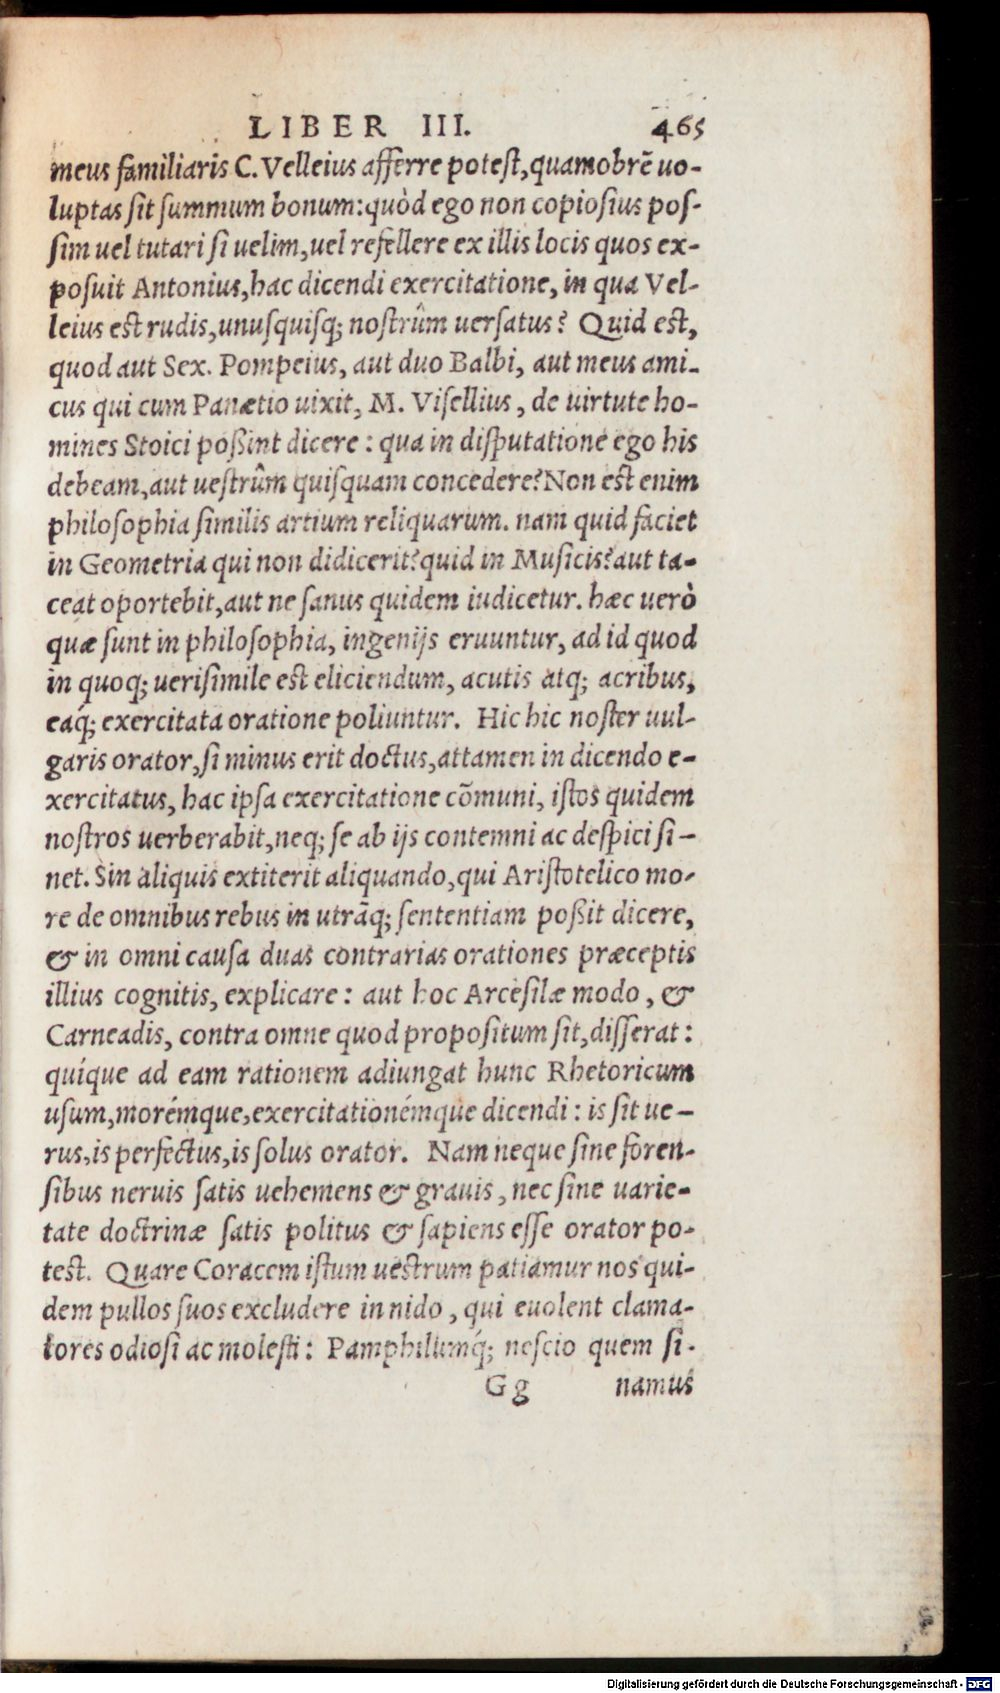 LIBER III. 465
meus familiaris C. Velleius afferre potest, quamobrẽ uo-
luptas sit summum bonum: quòd ego non copiosius pos-
sim uel tutari si uelim, uel refellere ex illis locis quos ex-
posuit Antonius, hac dicendi exercitatione, in qua Vel-
leius est rudis, unusquisq; nostrûm uersatus? Quid est,
quod aut Sex. Pompeius, aut duo Balbi, aut meus ami-
cus qui cum Panætio uixit, M. Visellius, de uirtute ho-
mines Stoici poßint dicere: qua in disputatione ego his
debeam, aut uestrûm quisquam concedere? Non est enim
philosophia similis artium reliquarum. nam quid faciet
in Geometria qui non didicerit? quid in Musicis? aut ta-
ceat oportebit, aut ne sanus quidem iudicetur. hæc uerò
quæ sunt in philosophia, ingenijs eruuntur, ad id quod
in quoq; uerisimile est eliciendum, acutis atq; acribus,
eaq́; exercitata oratione poliuntur. Hic hic noster uul-
garis orator, si minus erit doctus, attamen in dicendo e-
xercitatus, hac ipsa exercitatione cõmuni, istos quidem
nostros uerberabit, neq; se ab ijs contemni ac despici si-
net. Sin aliquis extiterit aliquando, qui Aristotelico mo-
re de omnibus rebus in utrãq; sententiam poßit dicere,
& in omni causa duas contrarias orationes præceptis
illius cognitis, explicare: aut hoc Arcesilæ modo, &
Carneadis, contra omne quod propositum sit, disserat:
quíque ad eam rationem adiungat hunc Rhetoricum
usum, morémque, exercitationémque dicendi: is sit ue-
rus, is perfectus, is solus orator. Nam neque sine foren-
sibus neruis satis uehemens & grauis, nec sine uarie-
tate doctrinæ satis politus & sapiens esse orator po-
test. Quare Coracem istum uestrum patiamur nos qui-
dem pullos suos excludere in nido, qui euolent clama-
tores odiosi ac molesti: Pamphilumq́; nescio quem si-
Gg namus
Digitalisierung gefördert durch die Deutsche Forschungsgemeinschaft - DFG